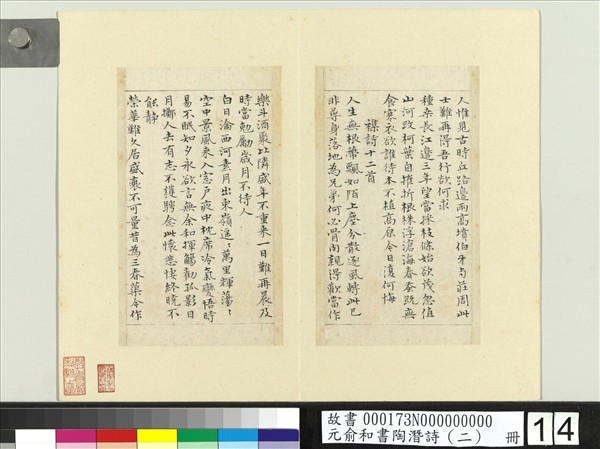 人惟見古時丘路邊兩高墳伯牙与莊周此
士難再得吾行欲何求
種桑長江邊三年望當採枝條始欲茂忽值
山河改柯葉自摧折根株浮滄海春蚕既無
食寒衣欲誰待本不植高原今日復何悔
雜詩十二首
人生無根蒂飄如陌上塵分散逐風轉此已
非身落地為兄弟何必骨肉親得歡當作
樂斗酒聚比隣盛年不重來一日難再晨及
時當勉勵歲月不待人
白日淪西河素月出東嶺遙〻萬里輝蕩〻
空中景風來入戶夜中枕席冷氣變悟時
易不眠知夕永欲言無余和揮觴勸孤影日
月擲人去有志不獲騁念此懷悲悽終曉不
能靜
榮華難久居盛衰不可量昔為三春蕖今作
故書 000173N000000000
元俞和書陶潛詩(二) 冊
14